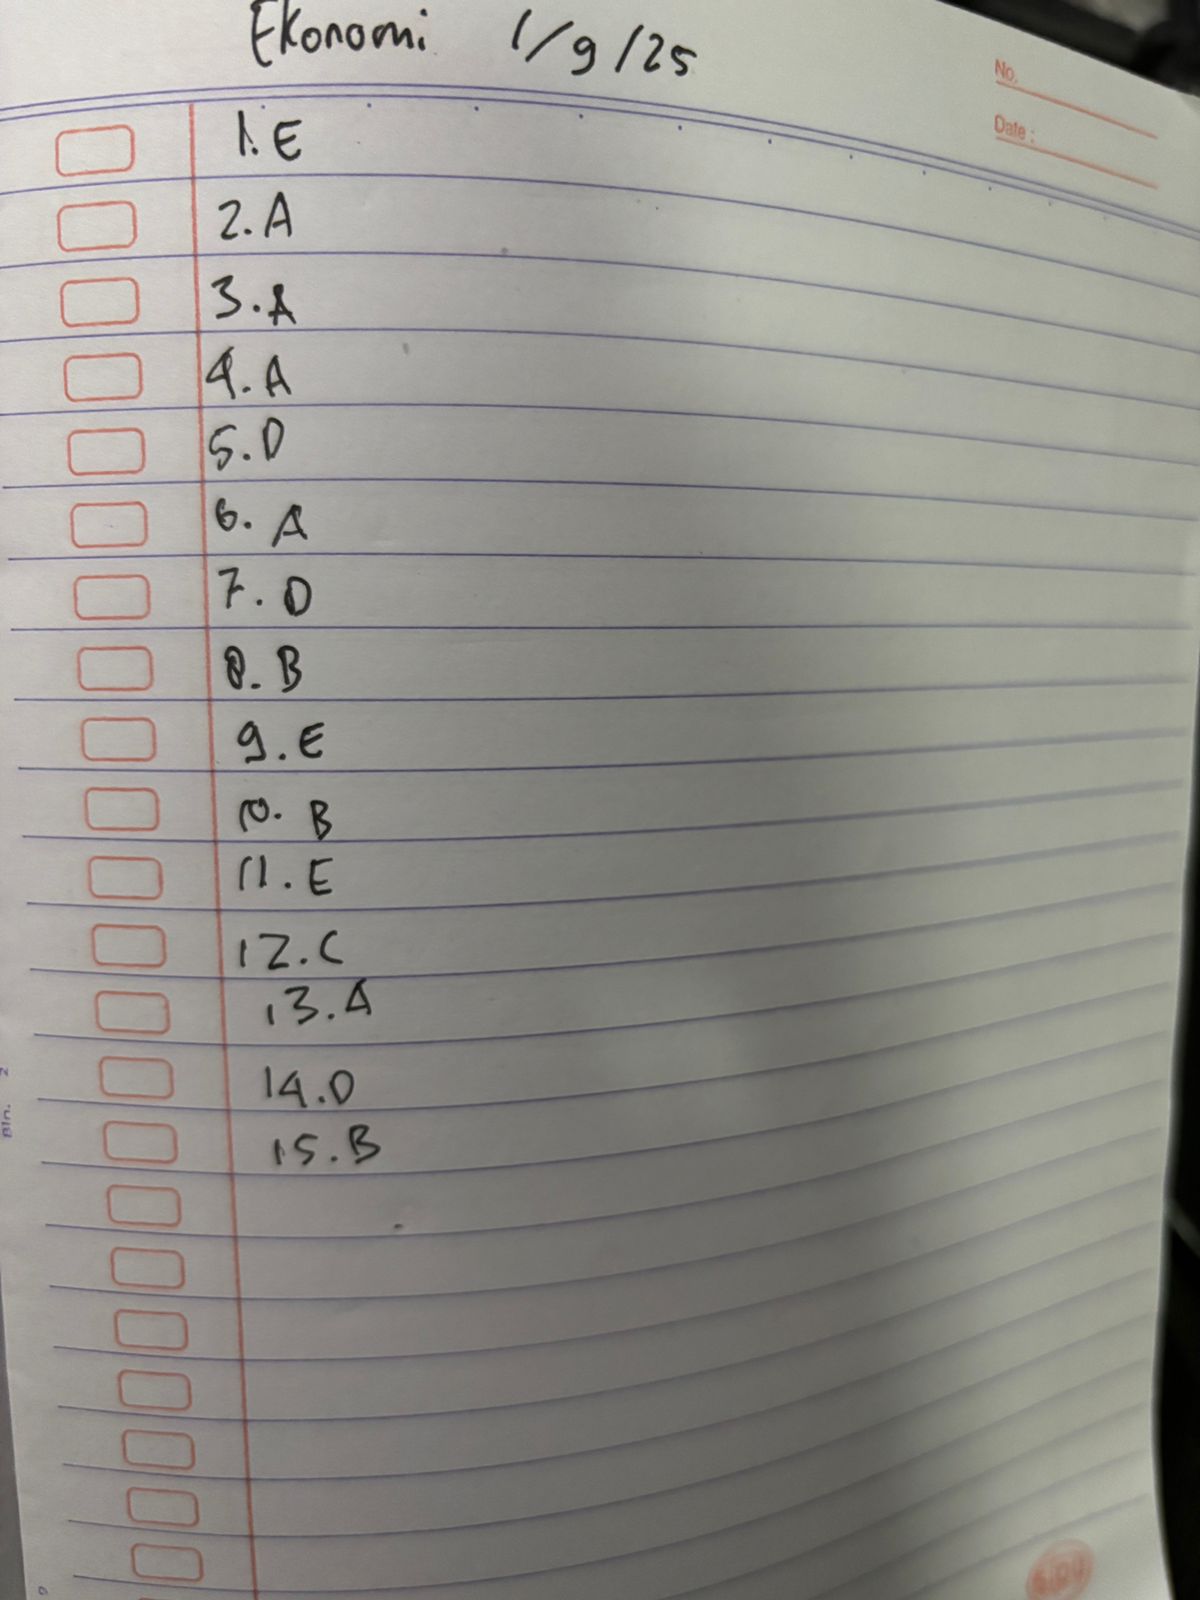 Ekonomi 1/9/25
No.
Date :
1. E
2. A
3. A
4. A
5. D
6. A
7. D
8. B
9. E
10. B
11. E
12. C
13. A
14. D
15. B
Bln. 2